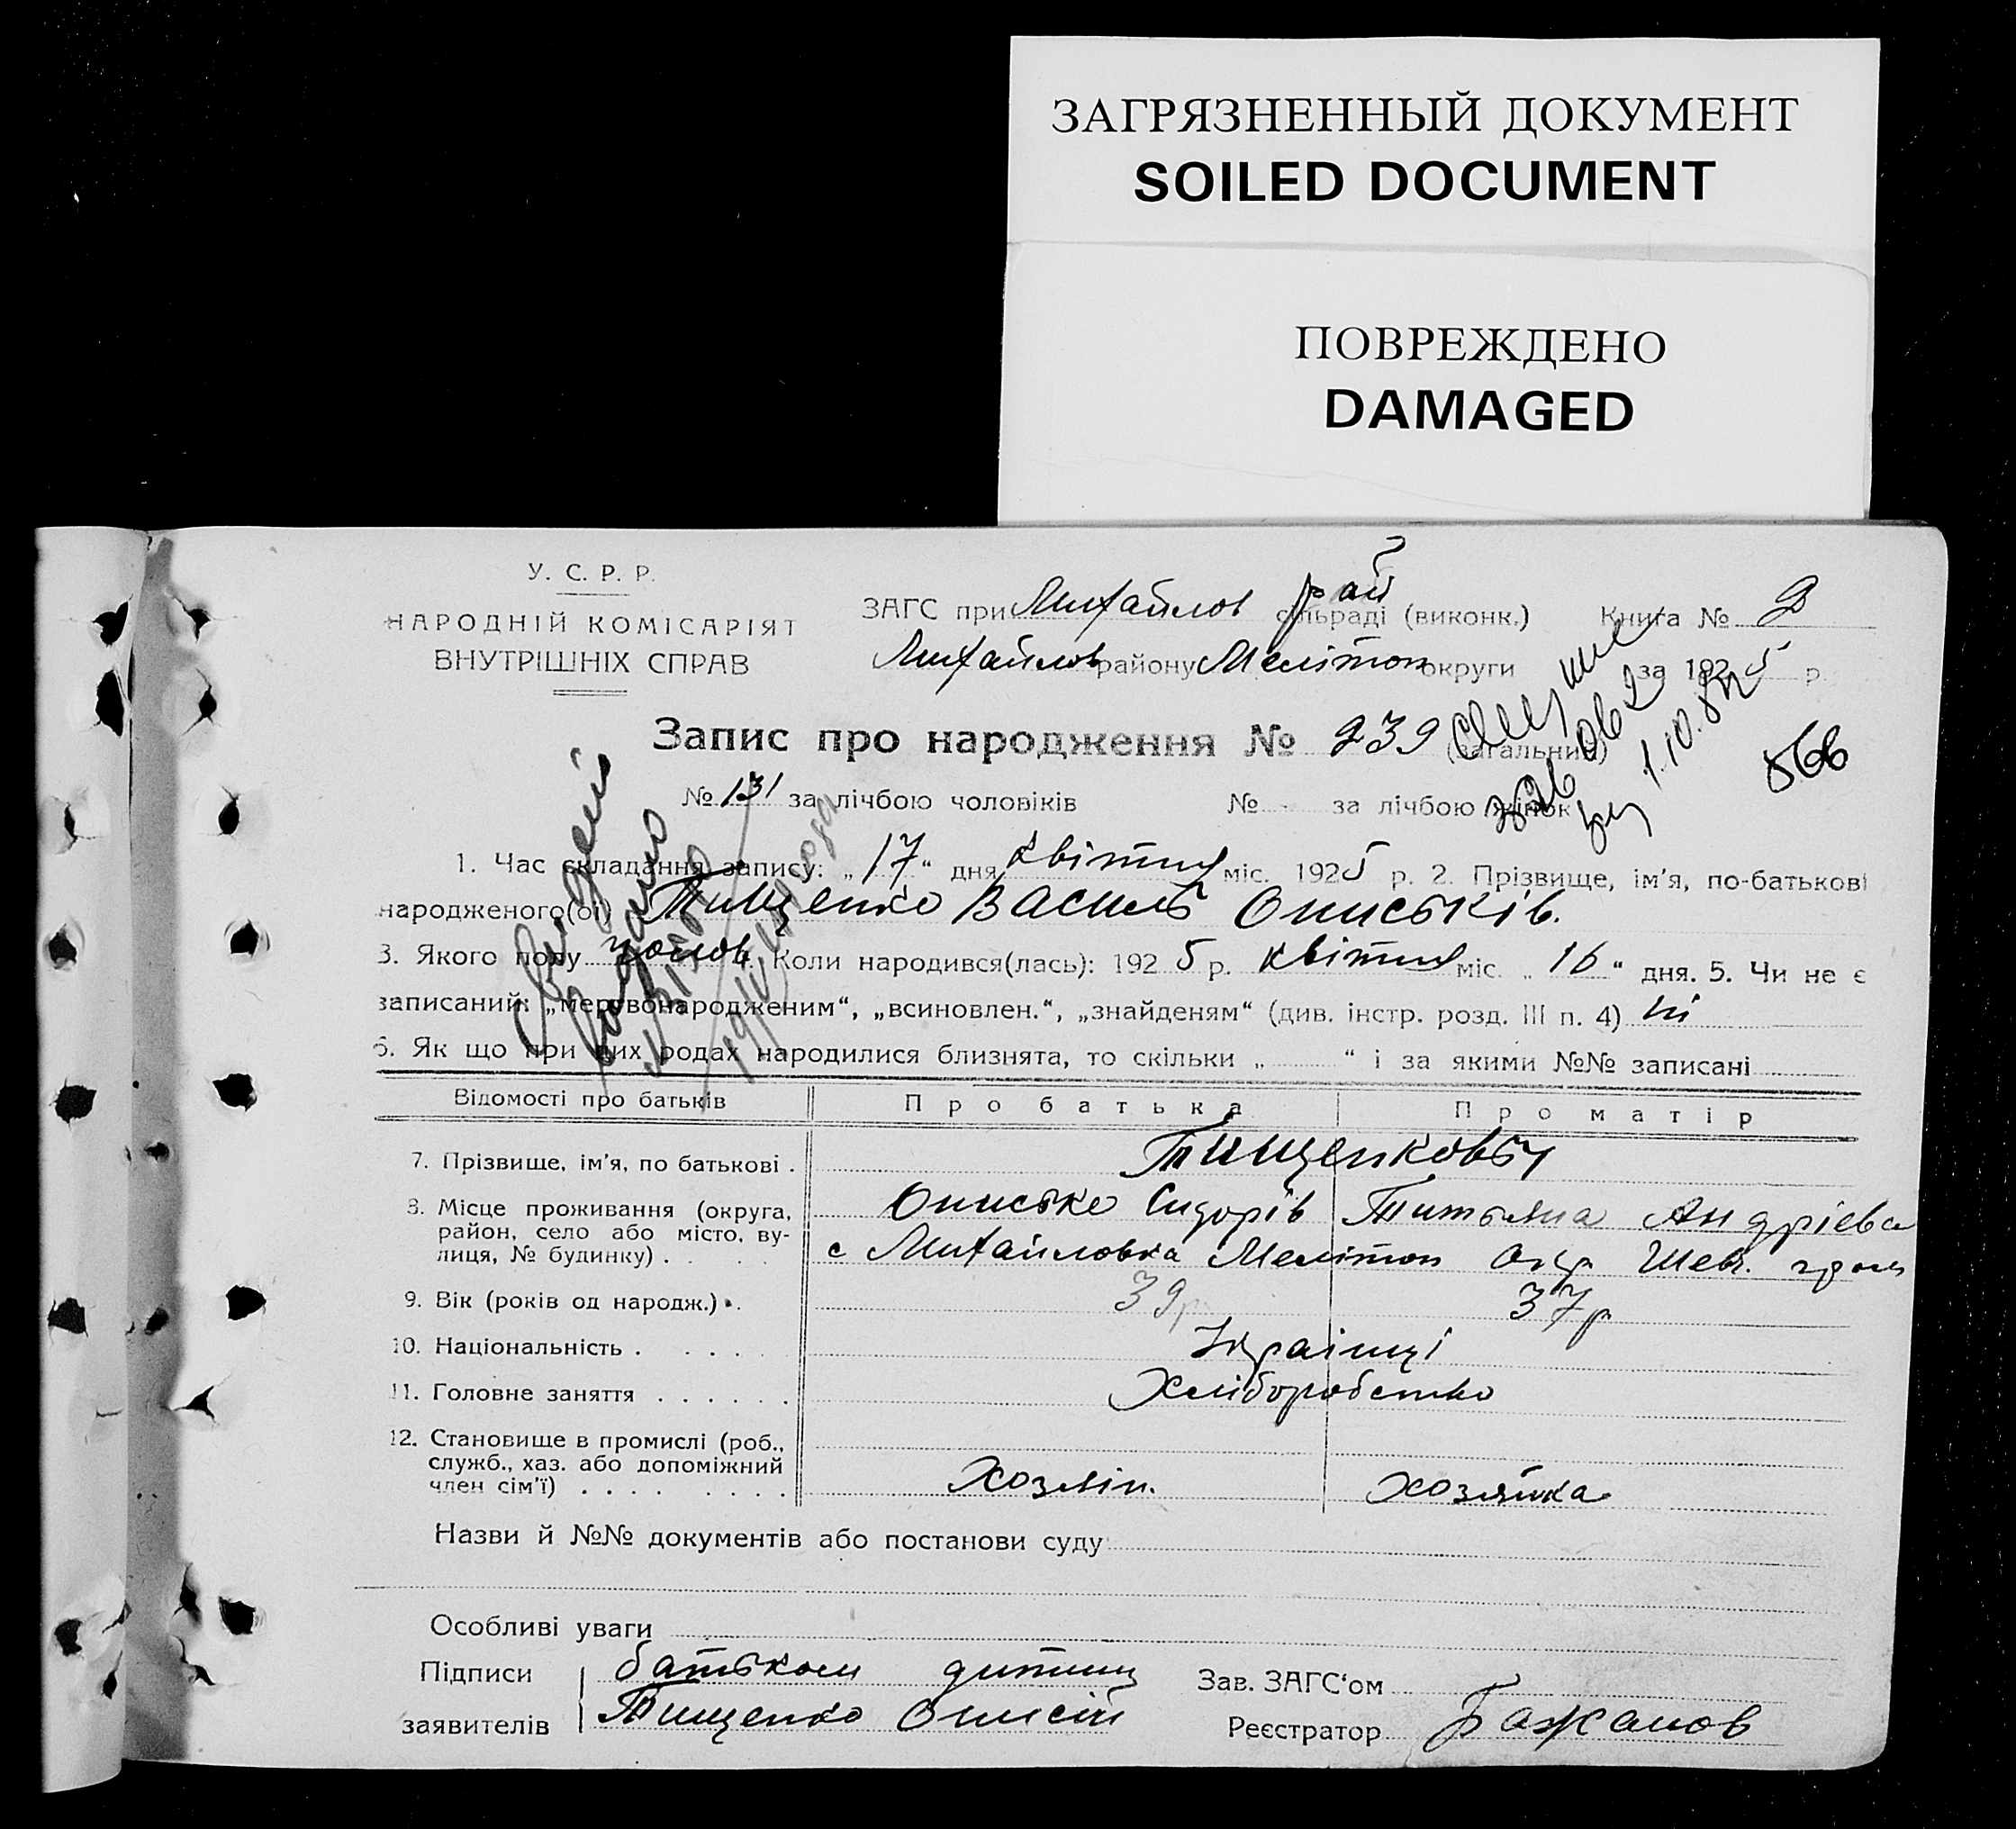 ЗАГРЯЗНЕННЫЙ ДОКУМЕНТ
SOILED DOCUMENT
ПОВРЕЖДЕНО
DAMAGED
У. С. Р. Р.
НАРОДНІЙ КОМІСАРІЯТ
ВНУТРІШНІХ СПРАВ
ЗАГС при Михайлов рай сільраді (виконк.) Книга № 2
Михайлов району Мелітоп округи за 1925 р.
Запис про народження № 239 (загальний)
№ 131 за лічбою чоловіків № за лічбою жінок
1. Час складання запису: „17“ дня квітня міс. 1925 р. 2. Прізвище, ім'я, по-батькові
народженого(ої) Тищенко Василь Описьків.
3. Якого полу чолов. Коли народився(лась): 1925 р. квітня міс. „16“ дня. 5. Чи не є
записаний: „мертвонародженим“, „всиновлен.“, „знайденям“ (див. інстр. розд. III п. 4) ні
6. Як що при цих родах народилися близнята, то скільки „ “ і за якими №№ записані
Відомості про батьків Про батька Про матір
7. Прізвище, ім'я, по батькові . Тищенковы
8. Місце проживання (округа, район, село або місто, вулиця, № будинку) . . .
Описько Сидорів Титьяна Андріева
с Михайловка Мелітоп окр Шевч. гром
9. Вік (років од народж.) . 39р 37р
10. Національність . . . . . Украінці
11. Головне заняття . . . . . . Хліборобство
12. Становище в промислі (роб.,
служб., хаз. або допоміжний
член сім'ї) . . . . . . . . Хозяін. хозяйка
Назви й №№ документів або постанови суду
Особливі уваги
Підписи батьком дитини Зав. ЗАГС'ом
заявителів Тищенко Онисій Реєстратор Бажанов